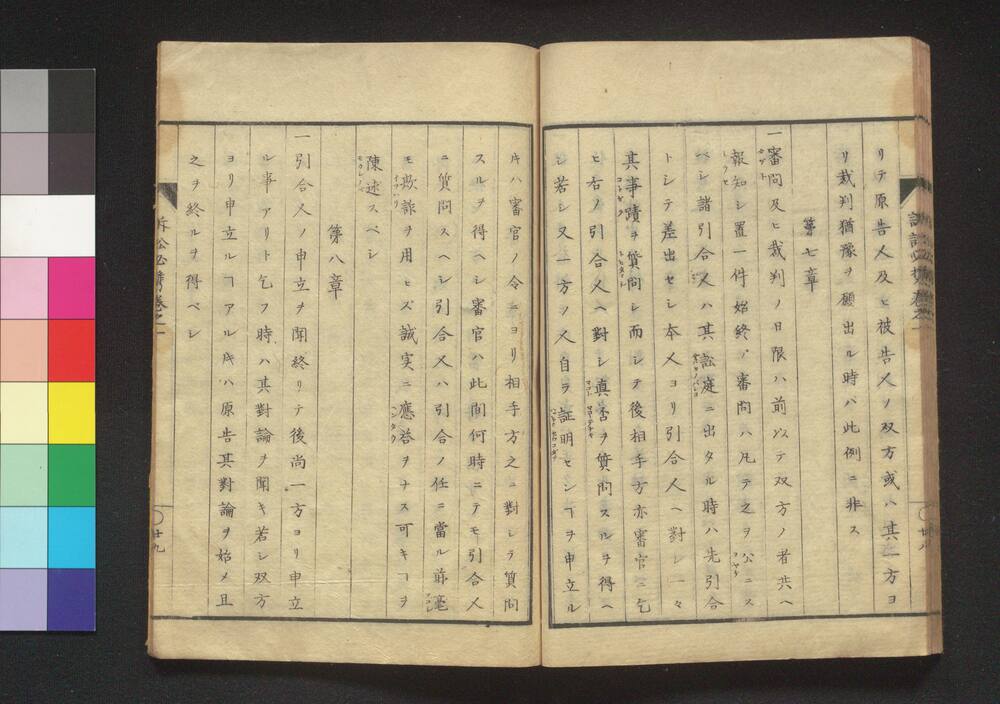 リテ原告人及ヒ被告人ノ双方或ハ其一方ヨ
リ裁判猶豫ヲ願出ル時ハ此例ニ非ス
第七章
一審問及ヒ裁判ノ日限ハ前以テ双方ノ者共ヘ
報知シ置一件始終ノ審問ハ凡テ之ヲ公ニス
ベシ諸引合人ハ其訟庭ニ出タル時ハ先引合
トシテ差出セシ本人ヨリ引合人ヘ對シ一々
其事蹟ヲ質問シ而シテ後相手方亦審官ニ乞
ヒ右ノ引合人ヘ對シ真否ヲ質問スルヲ得ヘ
シ若シ又一方ノ人自ラ証明センヿヲ申立ル
訴訟必携巻之一
廿八
圧ハ審官ノ令ニヨリ相手方之ニ對シテ質問
スルヲ得ヘシ審官ハ此間何時ニテモ引合人
ニ質問スヘシ引合人ハ引合ノ任ニ當ル節毫
モ欺詐ヲ用ヒズ誠実ニ應答ヲナス可キヿヲ
陳述スベシ
第八章
一引合人ノ申立ヲ聞終リテ後尚一方ヨリ申立
ル事アリト乞フ時ハ其對論ヲ聞キ若シ双方
ヨリ申立ルヿアル圧ハ原告其對論ヲ始メ且
之ヲ終ルヲ得ベシ
訴訟必携巻之一
廿九